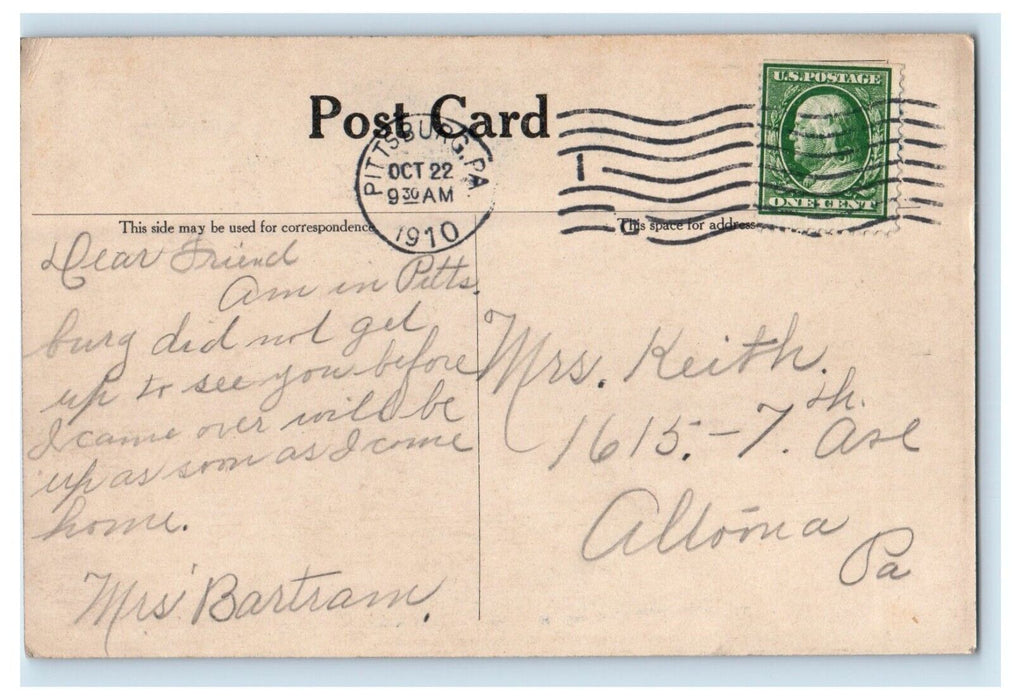 Post Card
U.S. POSTAGE
ONE CENT
PITTSBURG, PA
OCT 22
9 30 AM
1910
1
This side may be used for correspondence
This space for address
Dear Friend
Am in Pitts.
burg did not get
up to see you before
I came over will be
up as soon as I come
home.
Mrs Bartram.
Mrs. Keith.
1615.-7th. Ave
Altoona
Pa